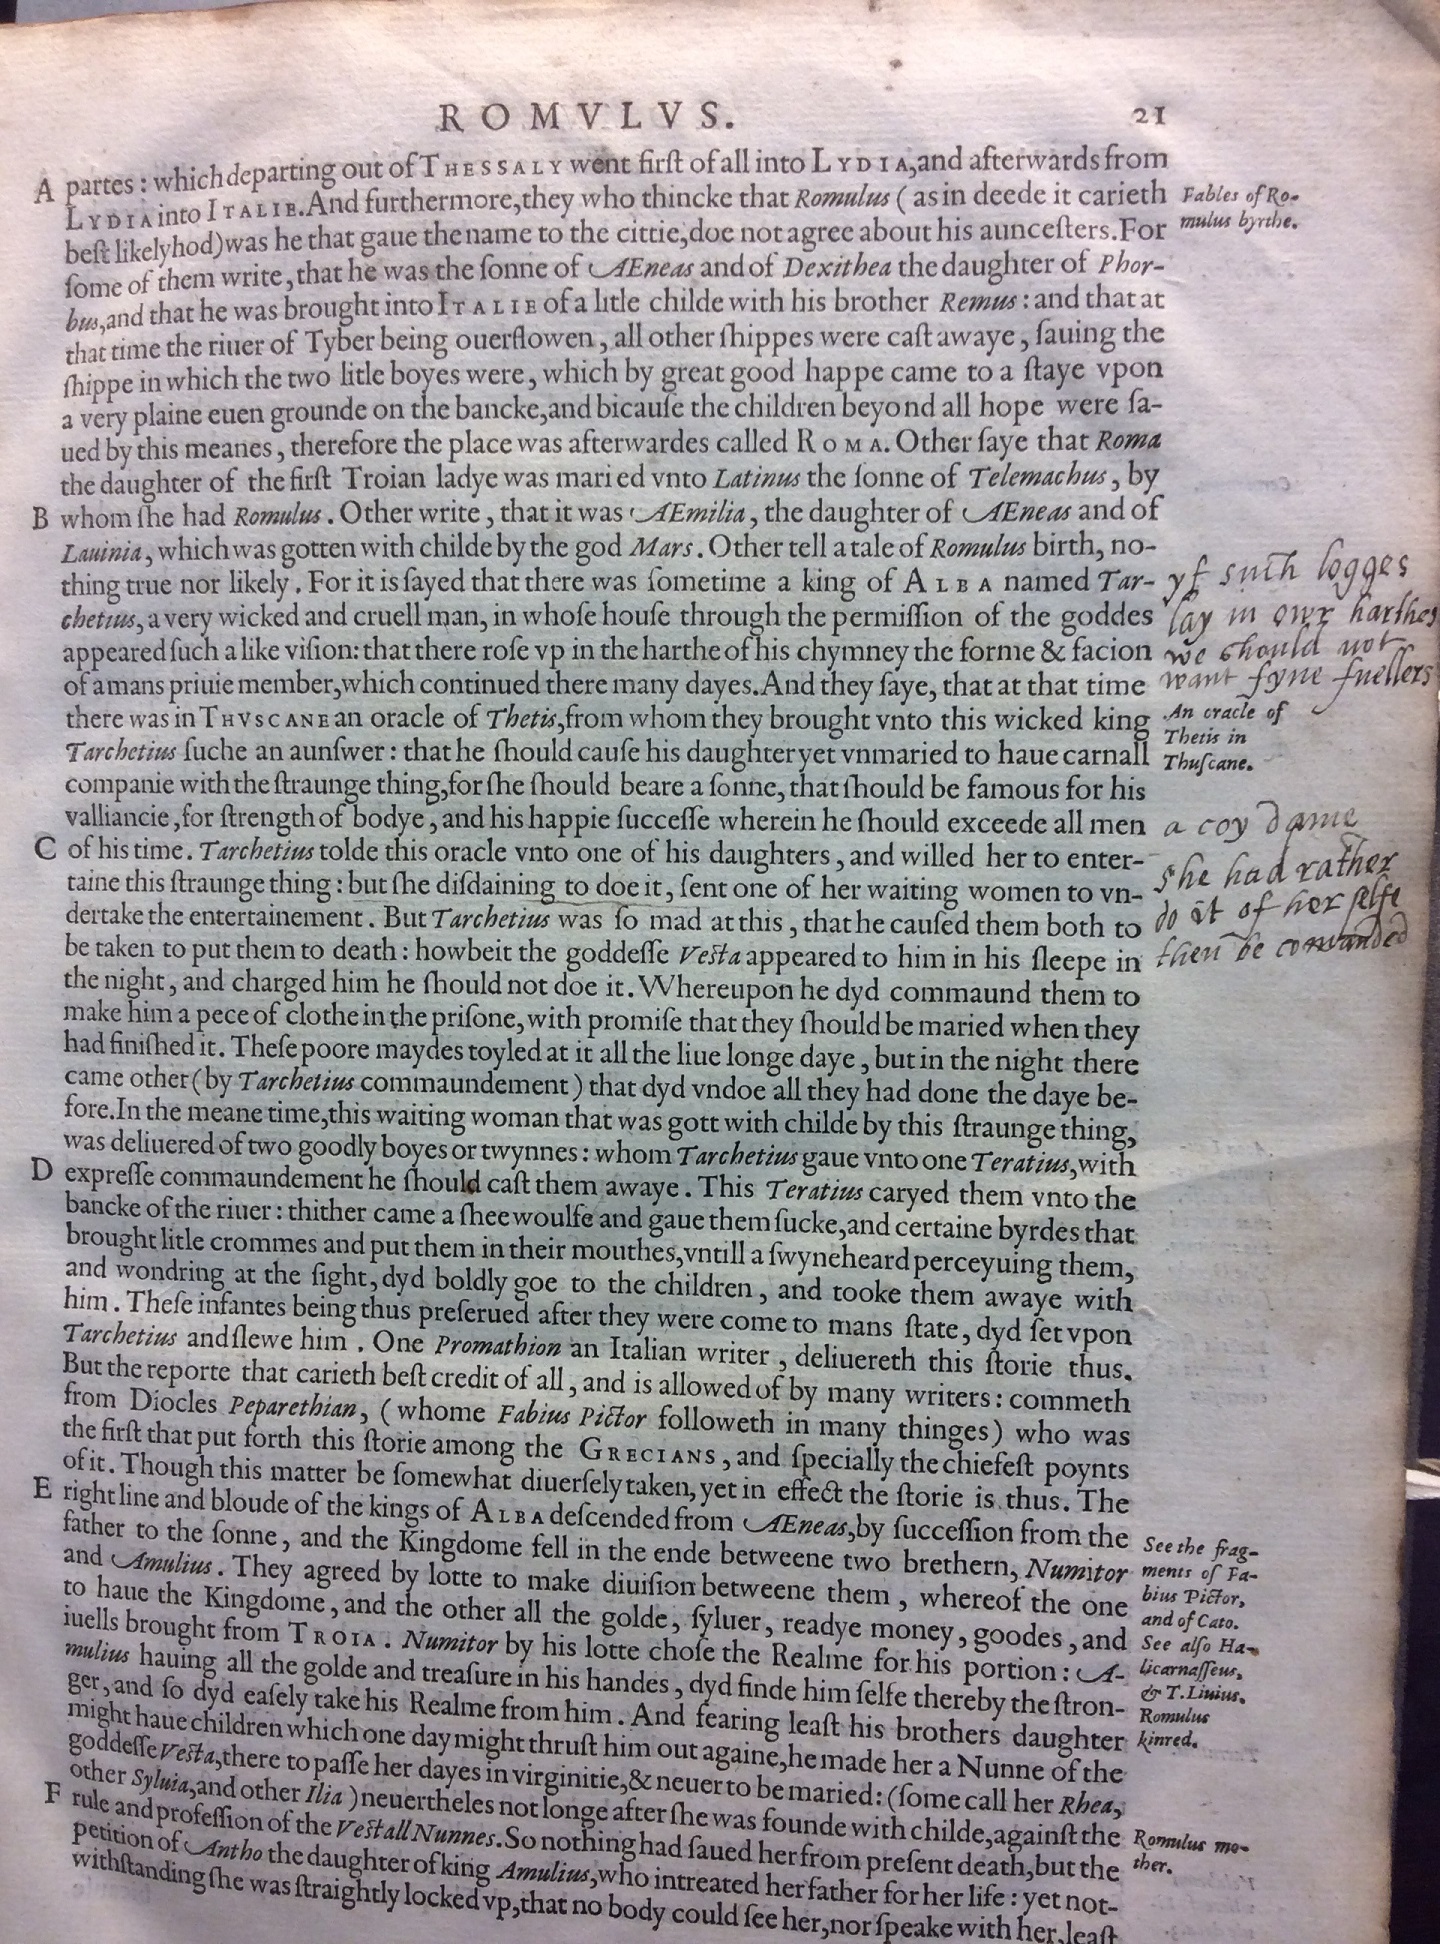 ROMVLVS. 21
A partes: which departing out of THESSALY went firſt of all into LYDIA, and afterwards from
LYDIA into ITALIE. And furthermore, they who thincke that Romulus (as in deede it carieth
beſt likelyhod) was he that gaue the name to the cittie, doe not agree about his aunceſters. For
ſome of them write, that he was the ſonne of AEneas and of Dexithea the daughter of Phor-
bus, and that he was brought into ITALIE of a litle childe with his brother Remus: and that at
that time the riuer of Tyber being ouerflowen, all other ſhippes were caſt awaye, ſauing the
ſhippe in which the two litle boyes were, which by great good happe came to a ſtaye vpon
a very plaine euen grounde on the bancke, and bicauſe the children beyond all hope were ſa-
ued by this meanes, therefore the place was afterwardes called ROMA. Other ſaye that Roma
the daughter of the firſt Troian ladye was maried vnto Latinus the ſonne of Telemachus, by
B whom ſhe had Romulus. Other write, that it was AEmilia, the daughter of AEneas and of
Lauinia, which was gotten with childe by the god Mars. Other tell a tale of Romulus birth, no-
thing true nor likely. For it is ſayed that there was ſometime a king of ALBA named Tar-
chetius, a very wicked and cruell man, in whoſe houſe through the permiſſion of the goddes
appeared ſuch a like viſion: that there roſe vp in the harthe of his chymney the forme & facion
of a mans priuie member, which continued there many dayes. And they ſaye, that at that time
there was in THVSCANE an oracle of Thetis, from whom they brought vnto this wicked king
Tarchetius ſuche an aunſwer: that he ſhould cauſe his daughter yet vnmaried to haue carnall
companie with the ſtraunge thing, for ſhe ſhould beare a ſonne, that ſhould be famous for his
valliancie, for ſtrength of bodye, and his happie ſucceſſe wherein he ſhould exceede all men
C of his time. Tarchetius tolde this oracle vnto one of his daughters, and willed her to enter-
taine this ſtraunge thing: but ſhe diſdaining to doe it, ſent one of her waiting women to vn-
dertake the entertainement. But Tarchetius was ſo mad at this, that he cauſed them both to
be taken to put them to death: howbeit the goddeſſe Veſta appeared to him in his ſleepe in
the night, and charged him he ſhould not doe it. Whereupon he dyd commaund them to
make him a pece of clothe in the priſone, with promiſe that they ſhould be maried when they
had finiſhed it. Theſe poore maydes toyled at it all the liue longe daye, but in the night there
came other (by Tarchetius commaundement) that dyd vndoe all they had done the daye be-
fore. In the meane time, this waiting woman that was gott with childe by this ſtraunge thing,
was deliuered of two goodly boyes or twynnes: whom Tarchetius gaue vnto one Teratius, with
D expreſſe commaundement he ſhould caſt them awaye. This Teratius caryed them vnto the
bancke of the riuer: thither came a ſhee woulfe and gaue them ſucke, and certaine byrdes that
brought litle crommes and put them in their mouthes, vntill a ſwyneheard perceyuing them,
and wondring at the ſight, dyd boldly goe to the children, and tooke them awaye with
him. Theſe infantes being thus preſerued after they were come to mans ſtate, dyd ſet vpon
Tarchetius and ſlewe him. One Promathion an Italian writer, deliuereth this ſtorie thus.
But the reporte that carieth beſt credit of all, and is allowed of by many writers: commeth
from Diocles Peparethian, (whome Fabius Pictor followeth in many thinges) who was
the firſt that put forth this ſtorie among the GRECIANS, and ſpecially the chiefeſt poynts
of it. Though this matter be ſomewhat diuerſely taken, yet in effect the ſtorie is thus. The
E right line and bloude of the kings of ALBA deſcended from AEneas, by ſucceſſion from the
father to the ſonne, and the Kingdome fell in the ende betweene two brethern, Numitor
and Amulius. They agreed by lotte to make diuiſion betweene them, whereof the one
to haue the Kingdome, and the other all the golde, ſyluer, readye money, goodes, and
iuells brought from TROIA. Numitor by his lotte choſe the Realme for his portion: A-
mulius hauing all the golde and treaſure in his handes, dyd finde him ſelfe thereby the ſtron-
ger, and ſo dyd eaſely take his Realme from him. And fearing leaſt his brothers daughter
might haue children which one day might thruſt him out againe, he made her a Nunne of the
goddeſſe Veſta, there to paſſe her dayes in virginitie, & neuer to be maried: (ſome call her Rhea,
other Syluia, and other Ilia) neuertheles not longe after ſhe was founde with childe, againſt the
F rule and profeſſion of the Veſtall Nunnes. So nothing had ſaued her from preſent death, but the
petition of Antho the daughter of king Amulius, who intreated her father for her life: yet not-
withſtanding ſhe was ſtraightly locked vp, that no body could ſee her, nor ſpeake with her, leaſt
Fables of Ro-
mulus byrthe.
yf such logges
lay in owr harthes
we should not
want fyne fuellers
An oracle of
Thetis in
Thuſcane.
a coy dame
she had rather
do it of her selfe
then be comanded
See the frag-
ments of Fa-
bius Pictor,
and of Cato.
See alſo Ha-
licarnaſſeus,
& T. Liuius.
Romulus
kinred.
Romulus mo-
ther.